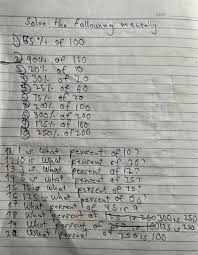 Solve the following mentally
1) 85% of 100
2) 90% of 120
3) 20% of 10
4) 30% of 20
5) 25% of 60
6) 75% of 20
7) 200% of 100
8) 300% of 200
9) of 100
10) 250% of 200
11 1 is what percent of 10?
12 10 is what percent of
13 3 is what percent of 12?
14 is what percent of 25?
15 15 is what percent of 75?
16 125 is what percent of
17 What percent of is
18 What percent of 300 is 250
19 What percent of 125 is 250
20 What percent of 250 is 100